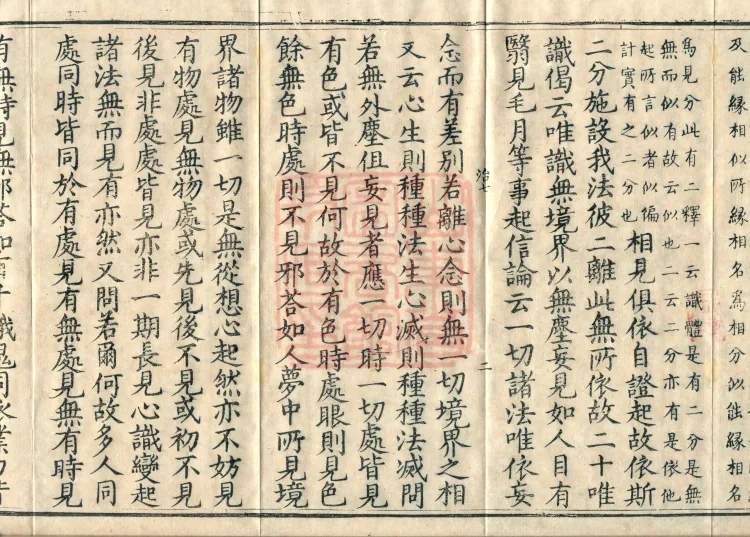 及能緣相似所緣相名為相分似能緣相名
為見分此有二釋一云識體是有二分是無
無而似有故云似也二云二分亦有是依他
起所言似者似徧
計實有之二分也
相見俱依自證起故依斯
二分施設我法彼二離此無所依故二十唯
識偈云唯識無境界以無塵妄見如人目有
翳見毛月等事起信論云一切諸法唯依妄
治七 二
念而有差別若離心念則無一切境界之相
又云心生則種種法生心滅則種種法滅問
若無外塵但妄見者應一切時一切處皆見
有色或皆不見何故於有色時處眼則見色
餘無色時處則不見邪荅如人夢中所見境
界諸物雖一切是無從想心起然亦不妨見
有物處見無物處或先見後不見或初不見
後見非處處皆見亦非一期長見心識變起
諸法無而見有亦然又問若爾何故多人同
處同時皆同於有處見有無處見無有時見
有無時見無邪荅如